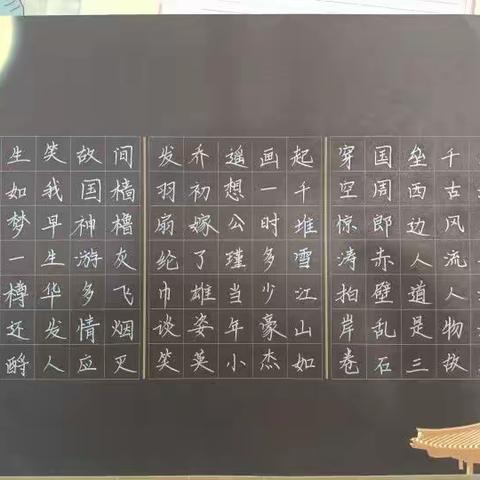 千古风流人物故
垒西边人道是三
国周郎赤壁乱石
穿空惊涛拍岸卷
起千堆雪江山如
画一时多少豪杰
遥想公瑾当年小
乔初嫁了雄姿英
发羽扇纶巾谈笑
间樯橹灰飞烟灭
故国神游多情应
笑我早生华发人
生如梦一樽还酹